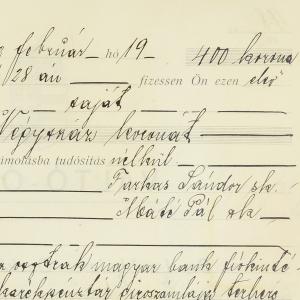 február hó 19- 400 korona
28 án fizessen Ön ezen első
saját
Négyszáz koronát
számolásba tudósítás nélkül
Farkas Sándor sk.
Máté Pál sk
osztrák magyar bank fiókinté-
girószámlája terhére